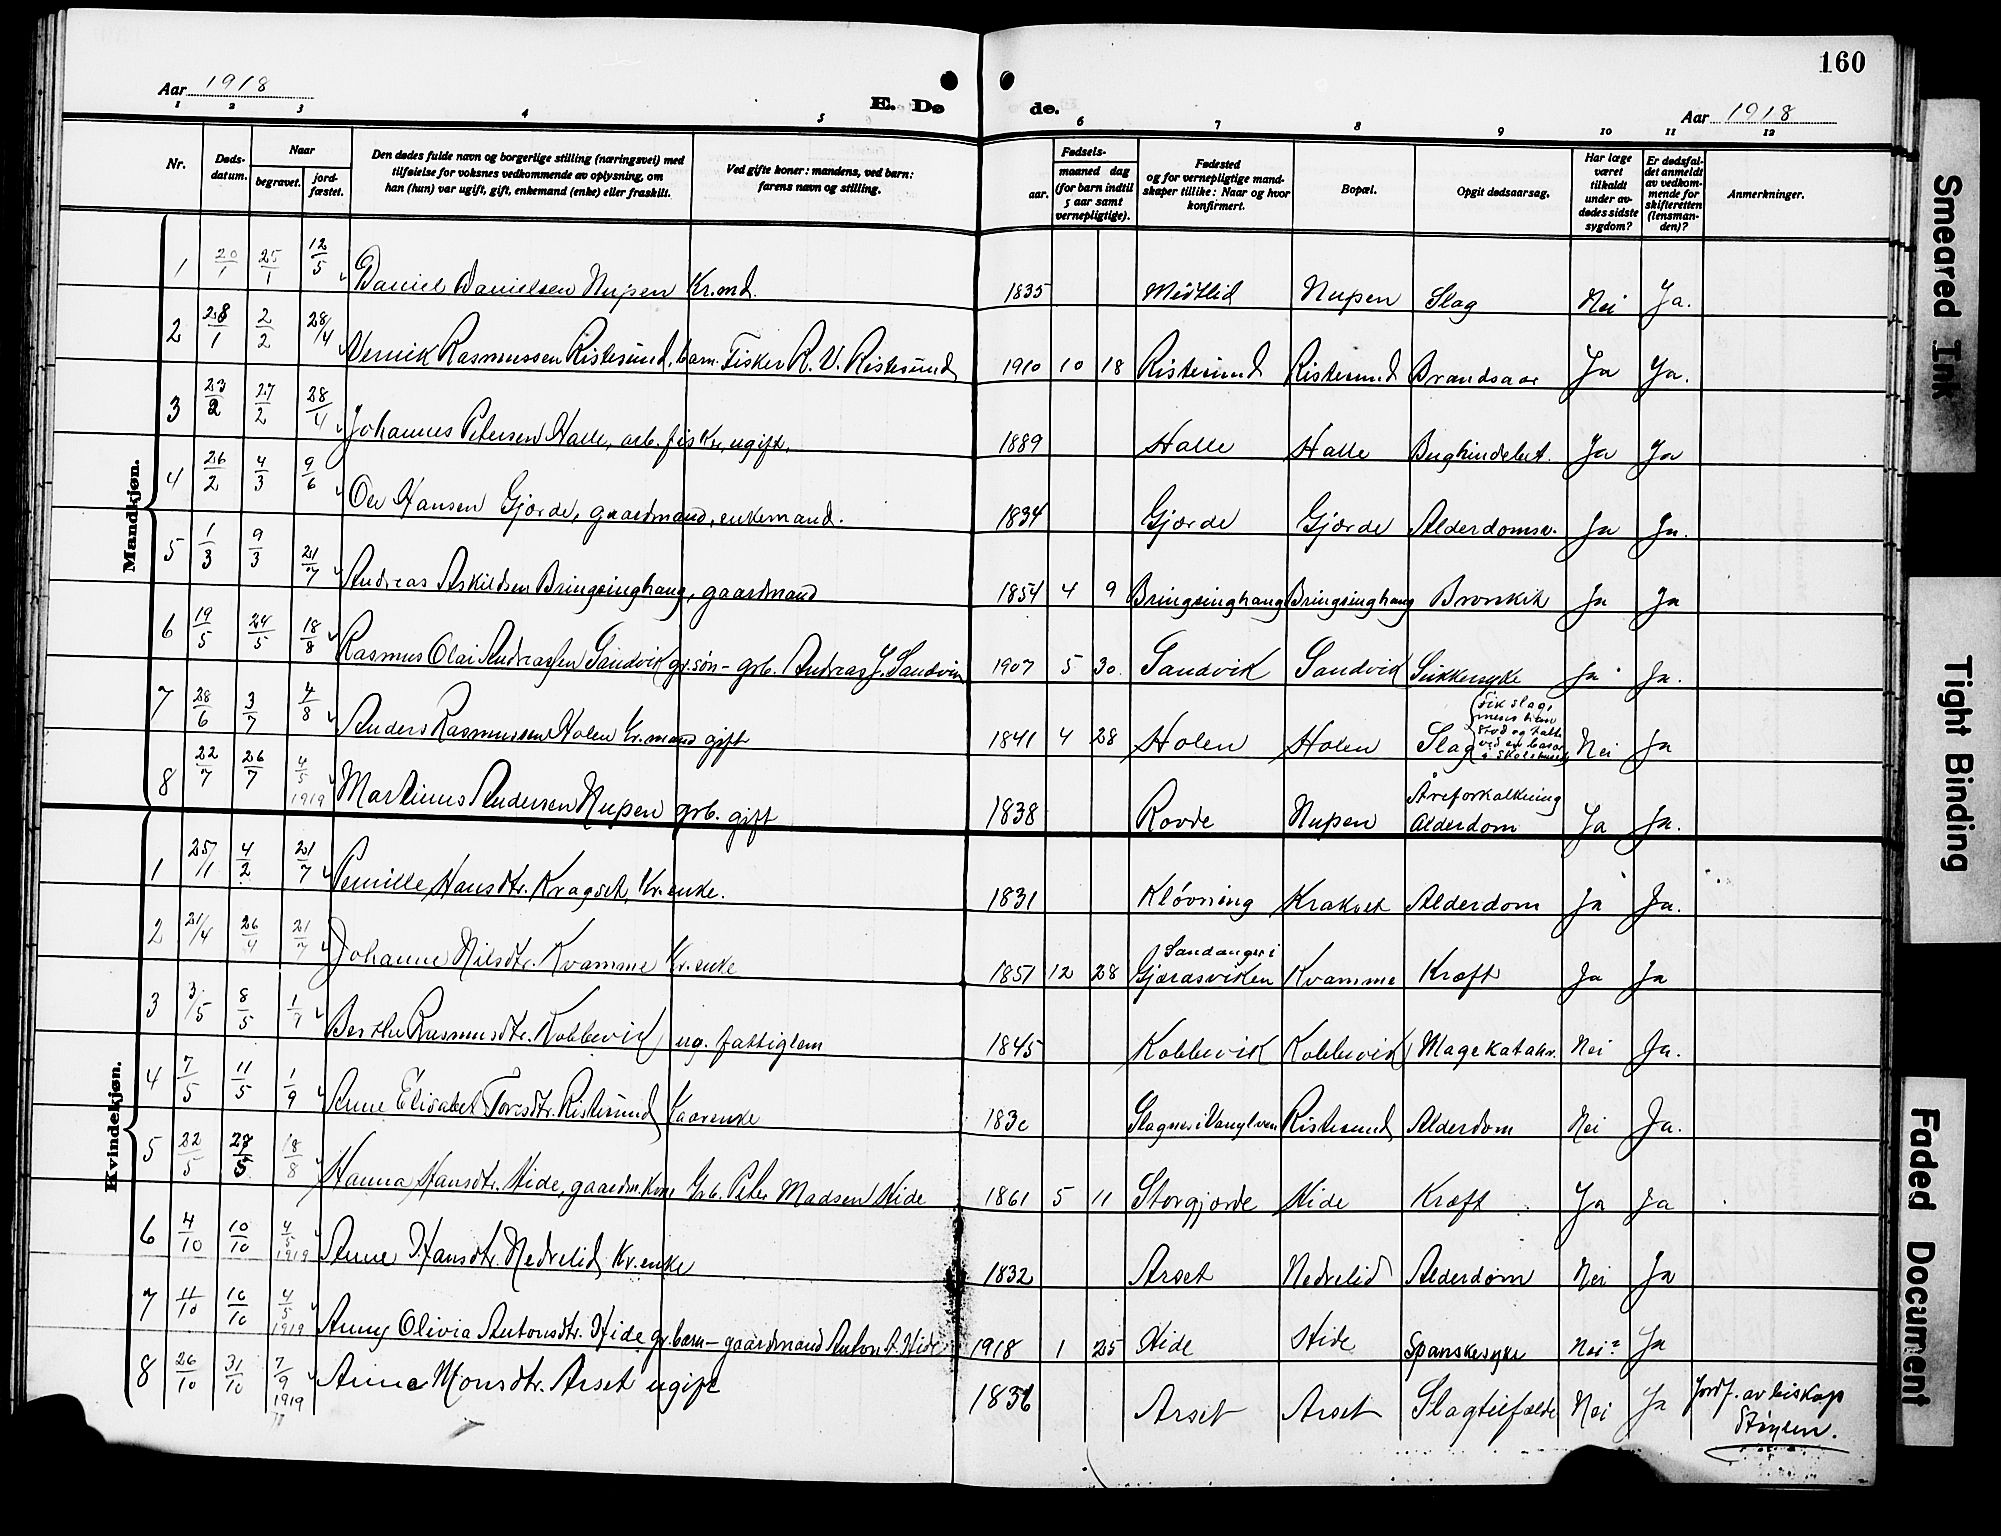 160
Aar 1918
E. Døde.
Aar 1918
1 2 3 4 5 6 7 8 9 10 11 12
Nr.
Døds-
datum.
Naar
begravet.
jord-
fæstet.
Den dødes fulde navn og borgerlige stilling (næringsvei) med
tilføielse for voksnes vedkommende av oplysning, om
han (hun) var ugift, gift, enkemand (enke) eller fraskilt.
Ved gifte koner: mandens, ved barn:
farens navn og stilling.
Fødsels-
aar.
maaned dag
(for barn indtil
5 aar samt
vernepligtige).
Fødested
og for vernepligtige mand-
skaper tillike: Naar og hvor
konfirmert.
Bopæl.
Opgit dødsaarsag.
Har læge
været
tilkaldt
under av-
dødes sidste
sygdom?
Er dødsfal-
det anmeldt
av vedkom-
mende for
skifteretten
(lensman-
den)?
Anmerkninger.
Mandkjøn.
1 20/1 25/1 12/5 Daniel Danielsen Nupen Kr.md. 1835 Midtlid Nupen Slag Nei Ja.
2 28/1 2/2 28/4 Rasmussen Ristesund, barn. Fisker R. V. Ristesund 1910 10 18 Ristesund Ristesund Brandsaar Ja Ja.
3 23/2 27/2 28/4 Johannes Petersen Halle, arb. fisker, ugift. 1889 Halle Halle Bughindebet. Ja Ja
4 26/2 4/3 9/6 Ole Hansen Gjørde, gaardmand, enkemand. 1834 Gjørde Gjørde Alderdomsv. Ja Ja.
5 1/3 9/3 21/7 Andreas Askildsen Bringsinghaug, gaardmand 1854 4 9 Bringsinghaug Bringsinghaug Bronkit Ja Ja
6 19/5 24/5 18/8 Rasmus Olai Andreassen Sandvik gr.søn - grb. Andreas J. Sandvik 1907 5 30. Sandvik Sandvik Sukkersyke Ja Ja.
7 28/6 3/7 4/8 Anders Rasmussen Holen Kr.mand gift 1841 4 28 Holen Holen Slag (fik slag,
mens han
stod og talte
ved en basar
i skolehuset) Nei Ja
8 22/7 26/7 4/5 1919 Martinus Andersen Nupen grb. gift 1838 Rovde Nupen Åreforkalkning
Alderdom Ja Ja.
Kvindekjøn.
1 25/1 4/2 21/7 Pernille Hansdtr. Kragset, Kr.enke. 1831 Kløvning Krakset Alderdom Ja Ja.
2 21/4 26/4 21/7 Johanne Nilsdtr. Kvamme Kr.enke 1851 12 28 Sandanger i
Gjærdsviken Kvamme Kræft Ja Ja
3 3/5 8/5 1/9 Berthe Rasmusdtr. Kobbevik ug. fattiglem 1845 Kobbevik Kobbevik Magekatahr. Nei Ja.
4 7/5 11/5 1/9 Anne Elisabet Ristesund Kaarenke Slagnes i Vanylven Ristesund Alderdom Nei Ja.
5 22/5 28/5 18/8 Hanna Hansdtr. Hide, gaardm.kone Grb. Peter Madsen Hide 1861 5 11 Storgjørde Hide Kræft Ja Ja
6 4/10 10/10 4/5 1919 Anne Hansdtr. Nedrelid, Kr.enke 1832 Arset Nedrelid Alderdom Nei Ja
7 11/10 10/10 4/5 1919 Anny Olivia Antonsdtr. Hide gr.barn - gaardmand Anton A. Hide 1918 1 25 Hide Hide Spanskesyke Nei Ja
8 26/10 31/10 7/9 1919 Anne Monsdtr. Arset ugift 1836 Arset Arset Slagtilfælde Nei Ja Jordf. av biskop
Støylen.
Smeared Ink
Tight Binding
Faded Document